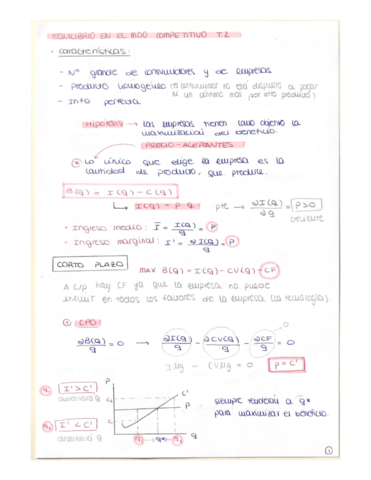 EQUILIBRIO EN EL MDO COMPETITIVO T.2
• características:
- Nº grande de consumidores y de empresas
- Producto homogéneo (el consumidor no está dispuesto a pagar
ni un céntimo más por otro producto)
- Info perfecta
HIPÓTESIS → las empresas tienen como objetivo la
maximización del beneficio.
PRECIO-ACEPTANTES
* Lo único que elige la empresa es la
cantidad de producto, que produce.
B(q) = I(q) - C(q)
→ I(q) = P · q → ∂I(q)/∂q = P > 0
creciente
- Ingreso medio: Ī = I(q)/q = P
- Ingreso marginal: I' = ∂I(q)/q = P
CORTO PLAZO
MAX B(q) = I(q) - CV(q) - CF
A c/p hay CF ya que la empresa no puede
influir en todos los factores de la empresa (la tecnología).
① CPO
∂B(q)/q = 0 → ∂I(q)/q - ∂CV(q)/q - ∂CF/q = 0
I'mg - CVMg = 0 P = C'
q₁ I' > C'
aumentaría q
q₂ I' < C'
disminuiría q
P
C'
P
q₁ q* q₂ q
siempre tenderían a q*
para maximizar el beneficio.
1